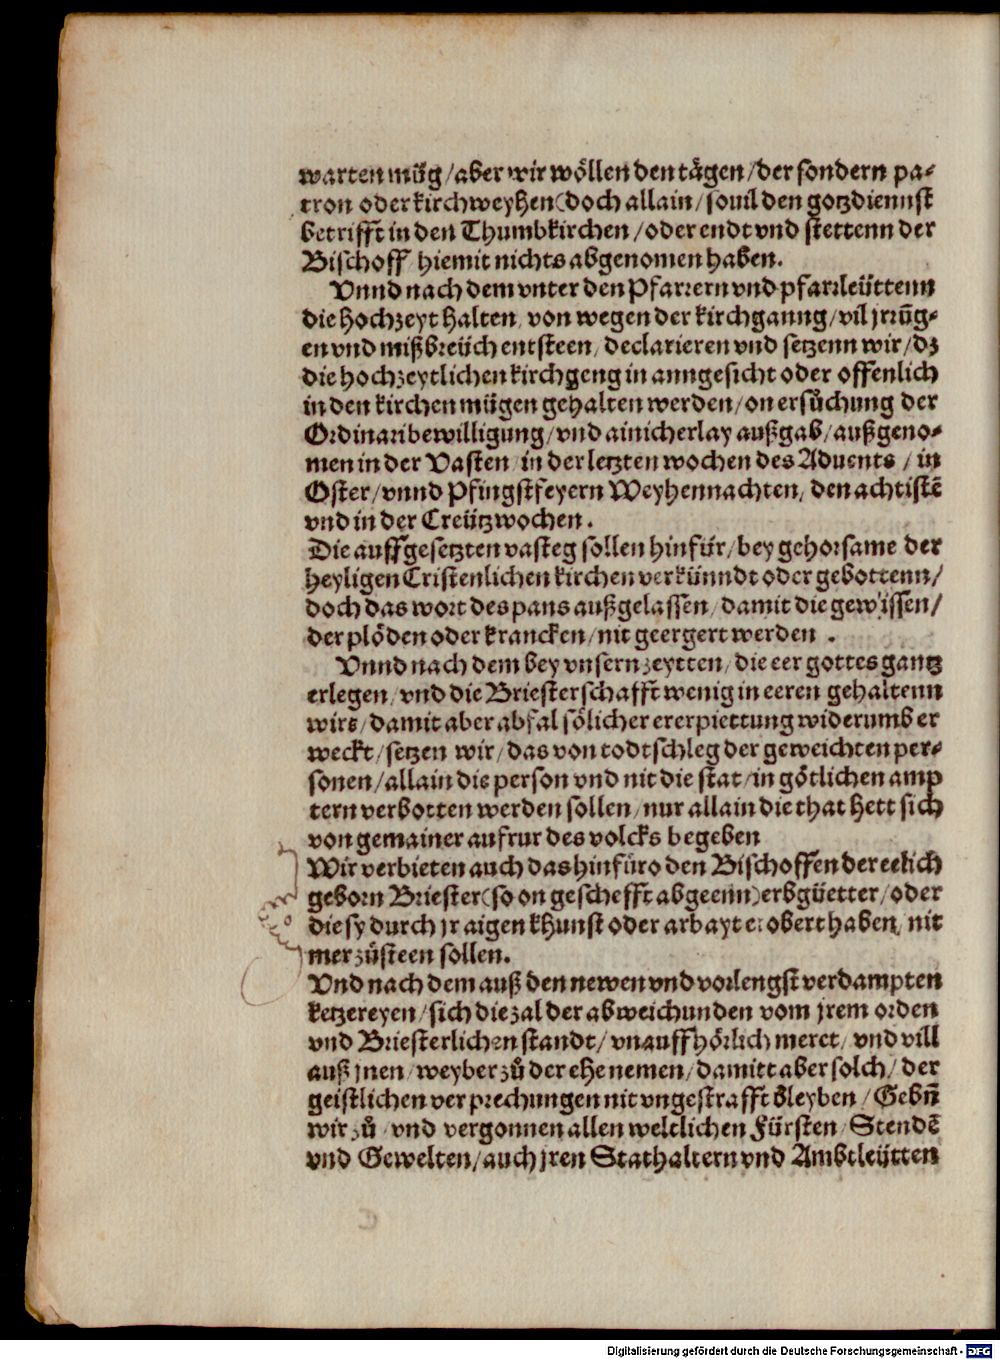 warten müg/aber wir wöllen den tägen/der sondern pa⸗
tron oder kirchweyhen(doch allain/souil den gotzdiennst
betrifft in den Thumbkirchen/oder endt vnd stettenn der
Bischoff/hiemit nichts abgenomen haben.
Vnnd nach dem vnter den Pfarrern vnd pfarrleüttenn
die hochzeyt halten/von wegen der kirchganng/vil jrrūg⸗
en vnd mißbreüch entsteen/declarieren vnd setzenn wir/dz
die hochzeytlichen kirchgeng in anngesicht oder offenlich
in den kirchen mügen gehalten werden/on ersůchung der
Ordinari bewilligung/vnd ainicherlay außgab/außgeno⸗
men in der Vasten/in der letzten wochen des Aduents/in
Oster/vnnd Pfingstfeyern Weyhennachten/den achtistē
vnd in der Creützwochen.
Die auffgesetzten vasteg sollen hinfür/bey gehorsame der
heyligen Cristenlichen kirchen verkünndt oder gebottenn/
doch das wort des pans außgelassen/damit die gewissen/
der plöden oder krancken/nit geergert werden.
Vnnd nach dem bey vnsern zeytten/die eer gottes gantz
erlegen/vnd die Briesterschafft wenig in eeren gehaltenn
wirt/damit aber abfal sölicher ererpiettung widerumb er
weckt/setzen wir/das von todtschleg der geweichten per⸗
sonen/allain die person vnd nit die stat/in götlichen amp
tern verbotten werden sollen/nur allain die that hett sich
von gemainer aufrur des volcks begeben
Wir verbieten auch das hinfüro den Bischoffen der eelich
geborn Briester(so on geschefft abgeenn)erbgüetter/oder
die sy durch jr aigen khunst oder arbayt erobert haben/nit
mer zůsteen sollen.
Vnd nach dem auß den newen vnd vorlengst verdampten
ketzereyen/sich die zal der abweichunden vom jrem orden
vnd Briesterlichen standt/vnauffhörlich meret/vnd vill
auß jnen/weyber zů der ehe nemen/damitt aber solch/der
geistlichen verprechungen nit vngestrafft bleyben/Gebñ
wir zů/vnd vergonnen allen weltlichen Fürsten/Stendē
vnd Gewelten/auch jren Stathaltern vnd Ambtleütten
Digitalisierung gefördert durch die Deutsche Forschungsgemeinschaft - DFG